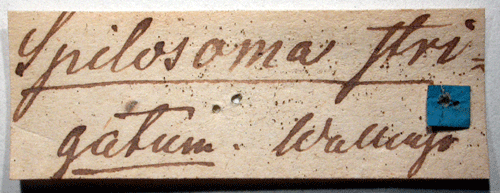 Spilosoma stri=
gatum. Wallengr